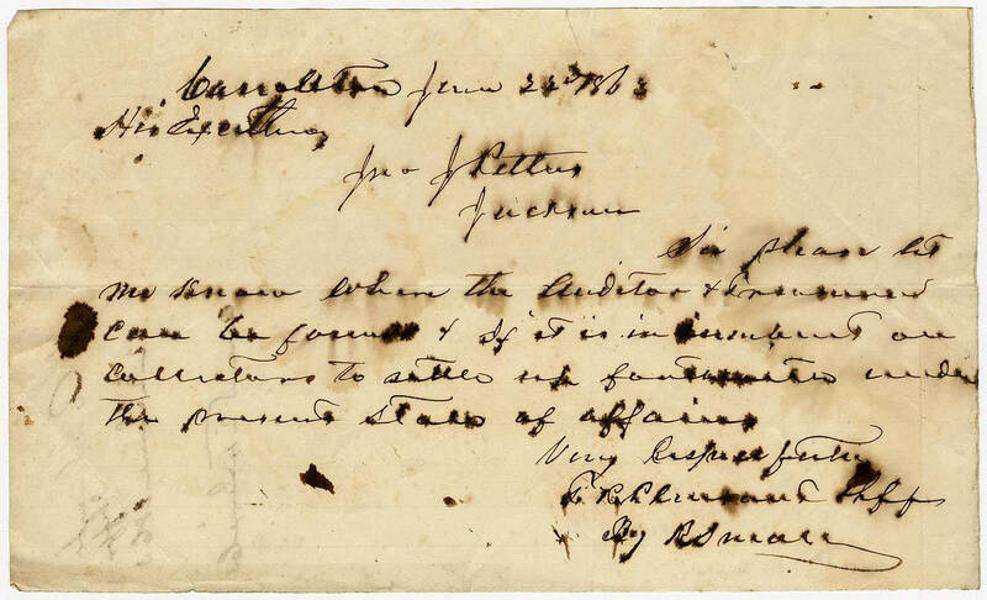 Carrollton June 22d 1863
His Excellency
Jno J Pettus
Jackson
Sir please let
me know where the Auditor & Treasurer
can be found & If it is incumbent on
Collectors to settle up forthwith under
the present state of affairs
Very Respectfully
Shff
By